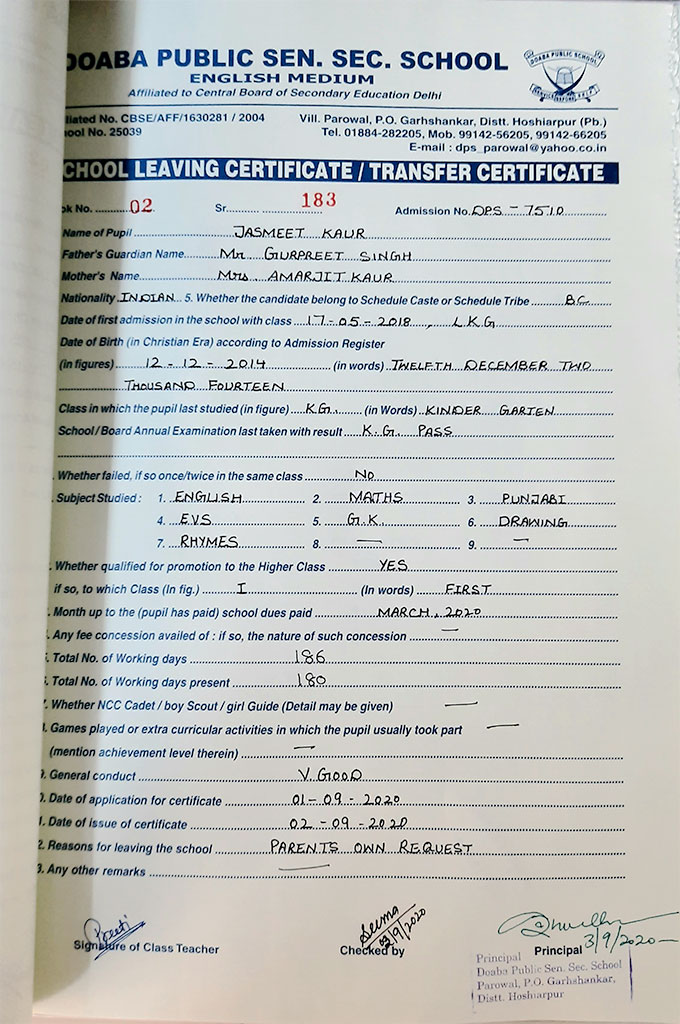 DOABA PUBLIC SEN. SEC. SCHOOL
ENGLISH MEDIUM
Affiliated to Central Board of Secondary Education Delhi
DOABA PUBLIC SCHOOL
liated No. CBSE/AFF/1630281 / 2004
Vill. Parowal, P.O. Garhshankar, Distt. Hoshiarpur (Pb.)
ool No. 25039
Tel. 01884-282205, Mob. 99142-56205, 99142-66205
E-mail : dps_parowal@yahoo.co.in
CHOOL LEAVING CERTIFICATE / TRANSFER CERTIFICATE
ok No. 02 Sr. 183 Admission No. DPS - 7510
Name of Pupil JASMEET KAUR
Father's Guardian Name Mr. GURPREET SINGH
Mother's Name Mrs. AMARJIT KAUR
Nationality INDIAN 5. Whether the candidate belong to Schedule Caste or Schedule Tribe BC
Date of first admission in the school with class 17-05-2018, L.K.G
Date of Birth (in Christian Era) according to Admission Register
(in figures) 12-12-2014 (in words) TWELFTH DECEMBER TWO
THOUSAND FOURTEEN
Class in which the pupil last studied (in figure) K.G. (in Words) KINDER GARTEN
School / Board Annual Examination last taken with result K.G. PASS
. Whether failed, if so once/twice in the same class NO
. Subject Studied : 1. ENGLISH 2. MATHS 3. PUNJABI
4. EVS 5. G.K. 6. DRAWING
7. RHYMES 8. — 9. —
. Whether qualified for promotion to the Higher Class YES
if so, to which Class (In fig.) I (In words) FIRST
. Month up to the (pupil has paid) school dues paid MARCH, 2020
. Any fee concession availed of : if so, the nature of such concession —
. Total No. of Working days 186
. Total No. of Working days present 180
. Whether NCC Cadet / boy Scout / girl Guide (Detail may be given) —
. Games played or extra curricular activities in which the pupil usually took part —
(mention achievement level therein) —
9. General conduct V. GOOD
0. Date of application for certificate 01-09-2020
1. Date of issue of certificate 02-09-2020
2. Reasons for leaving the school PARENTS OWN REQUEST
3. Any other remarks —
Preeti
Seema
03/9/2020
3/9/2020
Signature of Class Teacher
Checked by
Principal
Principal
Doaba Public Sen. Sec. School
Parowal, P.O. Garhshankar,
Distt. Hoshiarpur